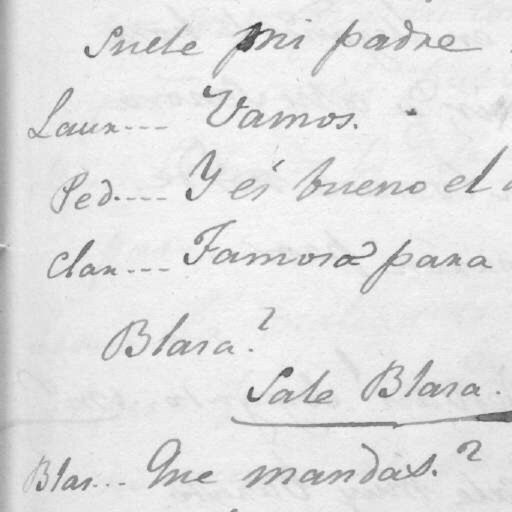 Suele mi padre
Laur... Vamos.
Ped.... Y es bueno el
Clar... Famosa para
Blasa?
Sale Blasa.
Blas... Que mandas.?